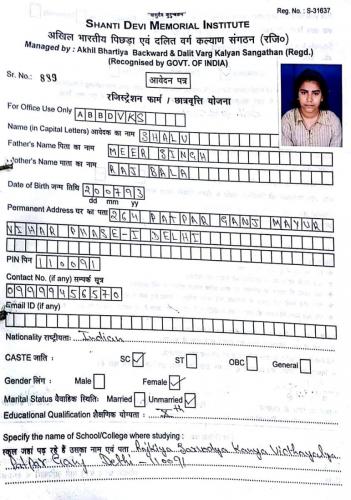 "सर्वशुभ मुहूर्तम"
Reg. No. : S-31637
SHANTI DEVI MEMORIAL INSTITUTE
अखिल भारतीय पिछड़ा एवं दलित वर्ग कल्याण संगठन (रजि०)
Managed by : Akhil Bhartiya Backward & Dalit Varg Kalyan Sangathan (Regd.)
(Recognised by GOVT. OF INDIA)
Sr. No.: 889
आवेदन पत्र
रजिस्ट्रेशन फार्म / छात्रवृत्ति योजना
For Office Use Only A B B D V K S
Name (in Capital Letters) आवेदक का नाम SHALU
Father's Name पिता का नाम MEER SINGH
Mother's Name माता का नाम RAJ BALA
Date of Birth जन्म तिथि 200793
dd mm yy
Permanent Address घर का पता 264 PATPAR GANJ MAYUR
VIHAR PHASE-I DELHI
PIN पिन 110091
Contact No. (if any) सम्पर्क सूत्र
09999456570
Email ID (if any)
Nationality राष्ट्रीयताः Indian
CASTE जाति : SC ✓ ST OBC General
Gender लिंग : Male Female ✓
Marital Status वैवाहिक स्थितिः Married Unmarried ✓
Educational Qualification शैक्षणिक योग्यता : Xth
Specify the name of School/College where studying :
स्कूल जहां पढ़ रहे हैं उसका नाम एवं पता Rajkiya Sarvodya Kanya Vidhyalya
Delhi - 110091